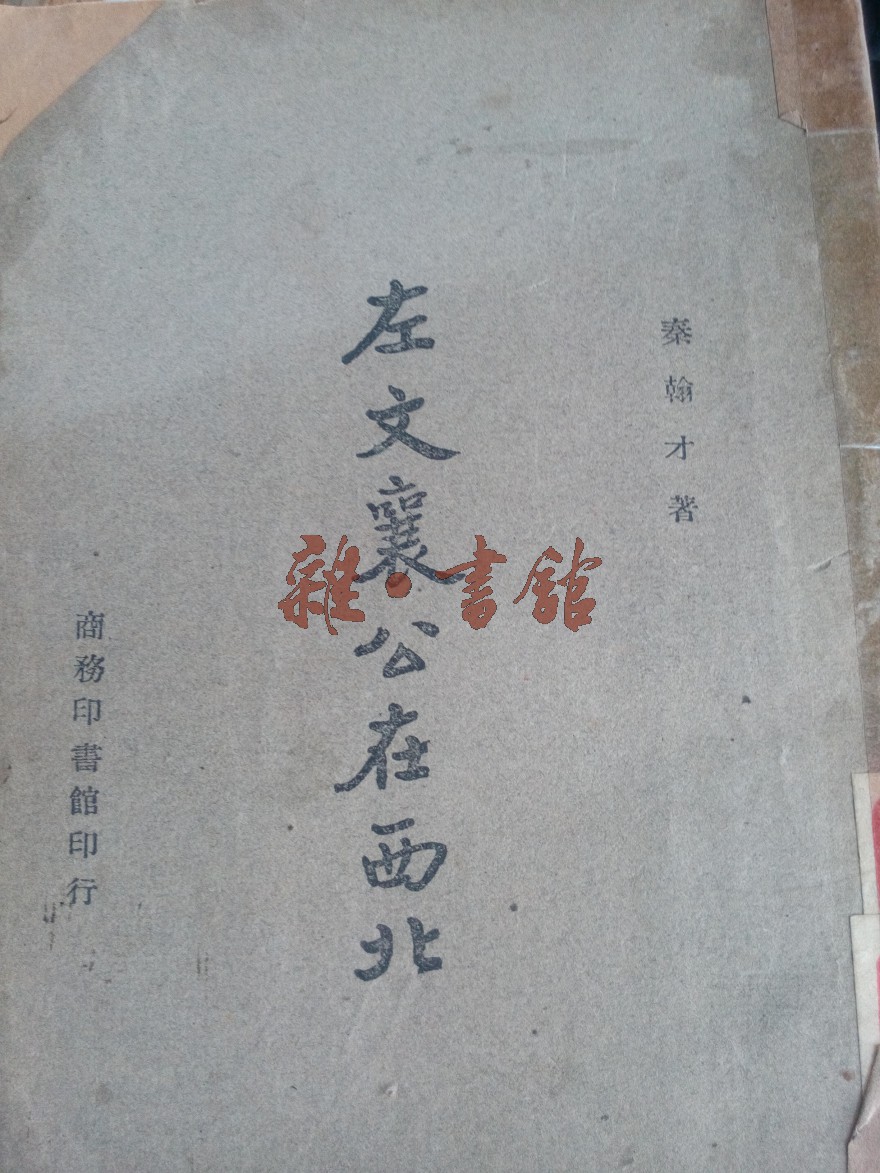 秦翰才著
左文襄公在西北
商務印書館印行
雜·書館